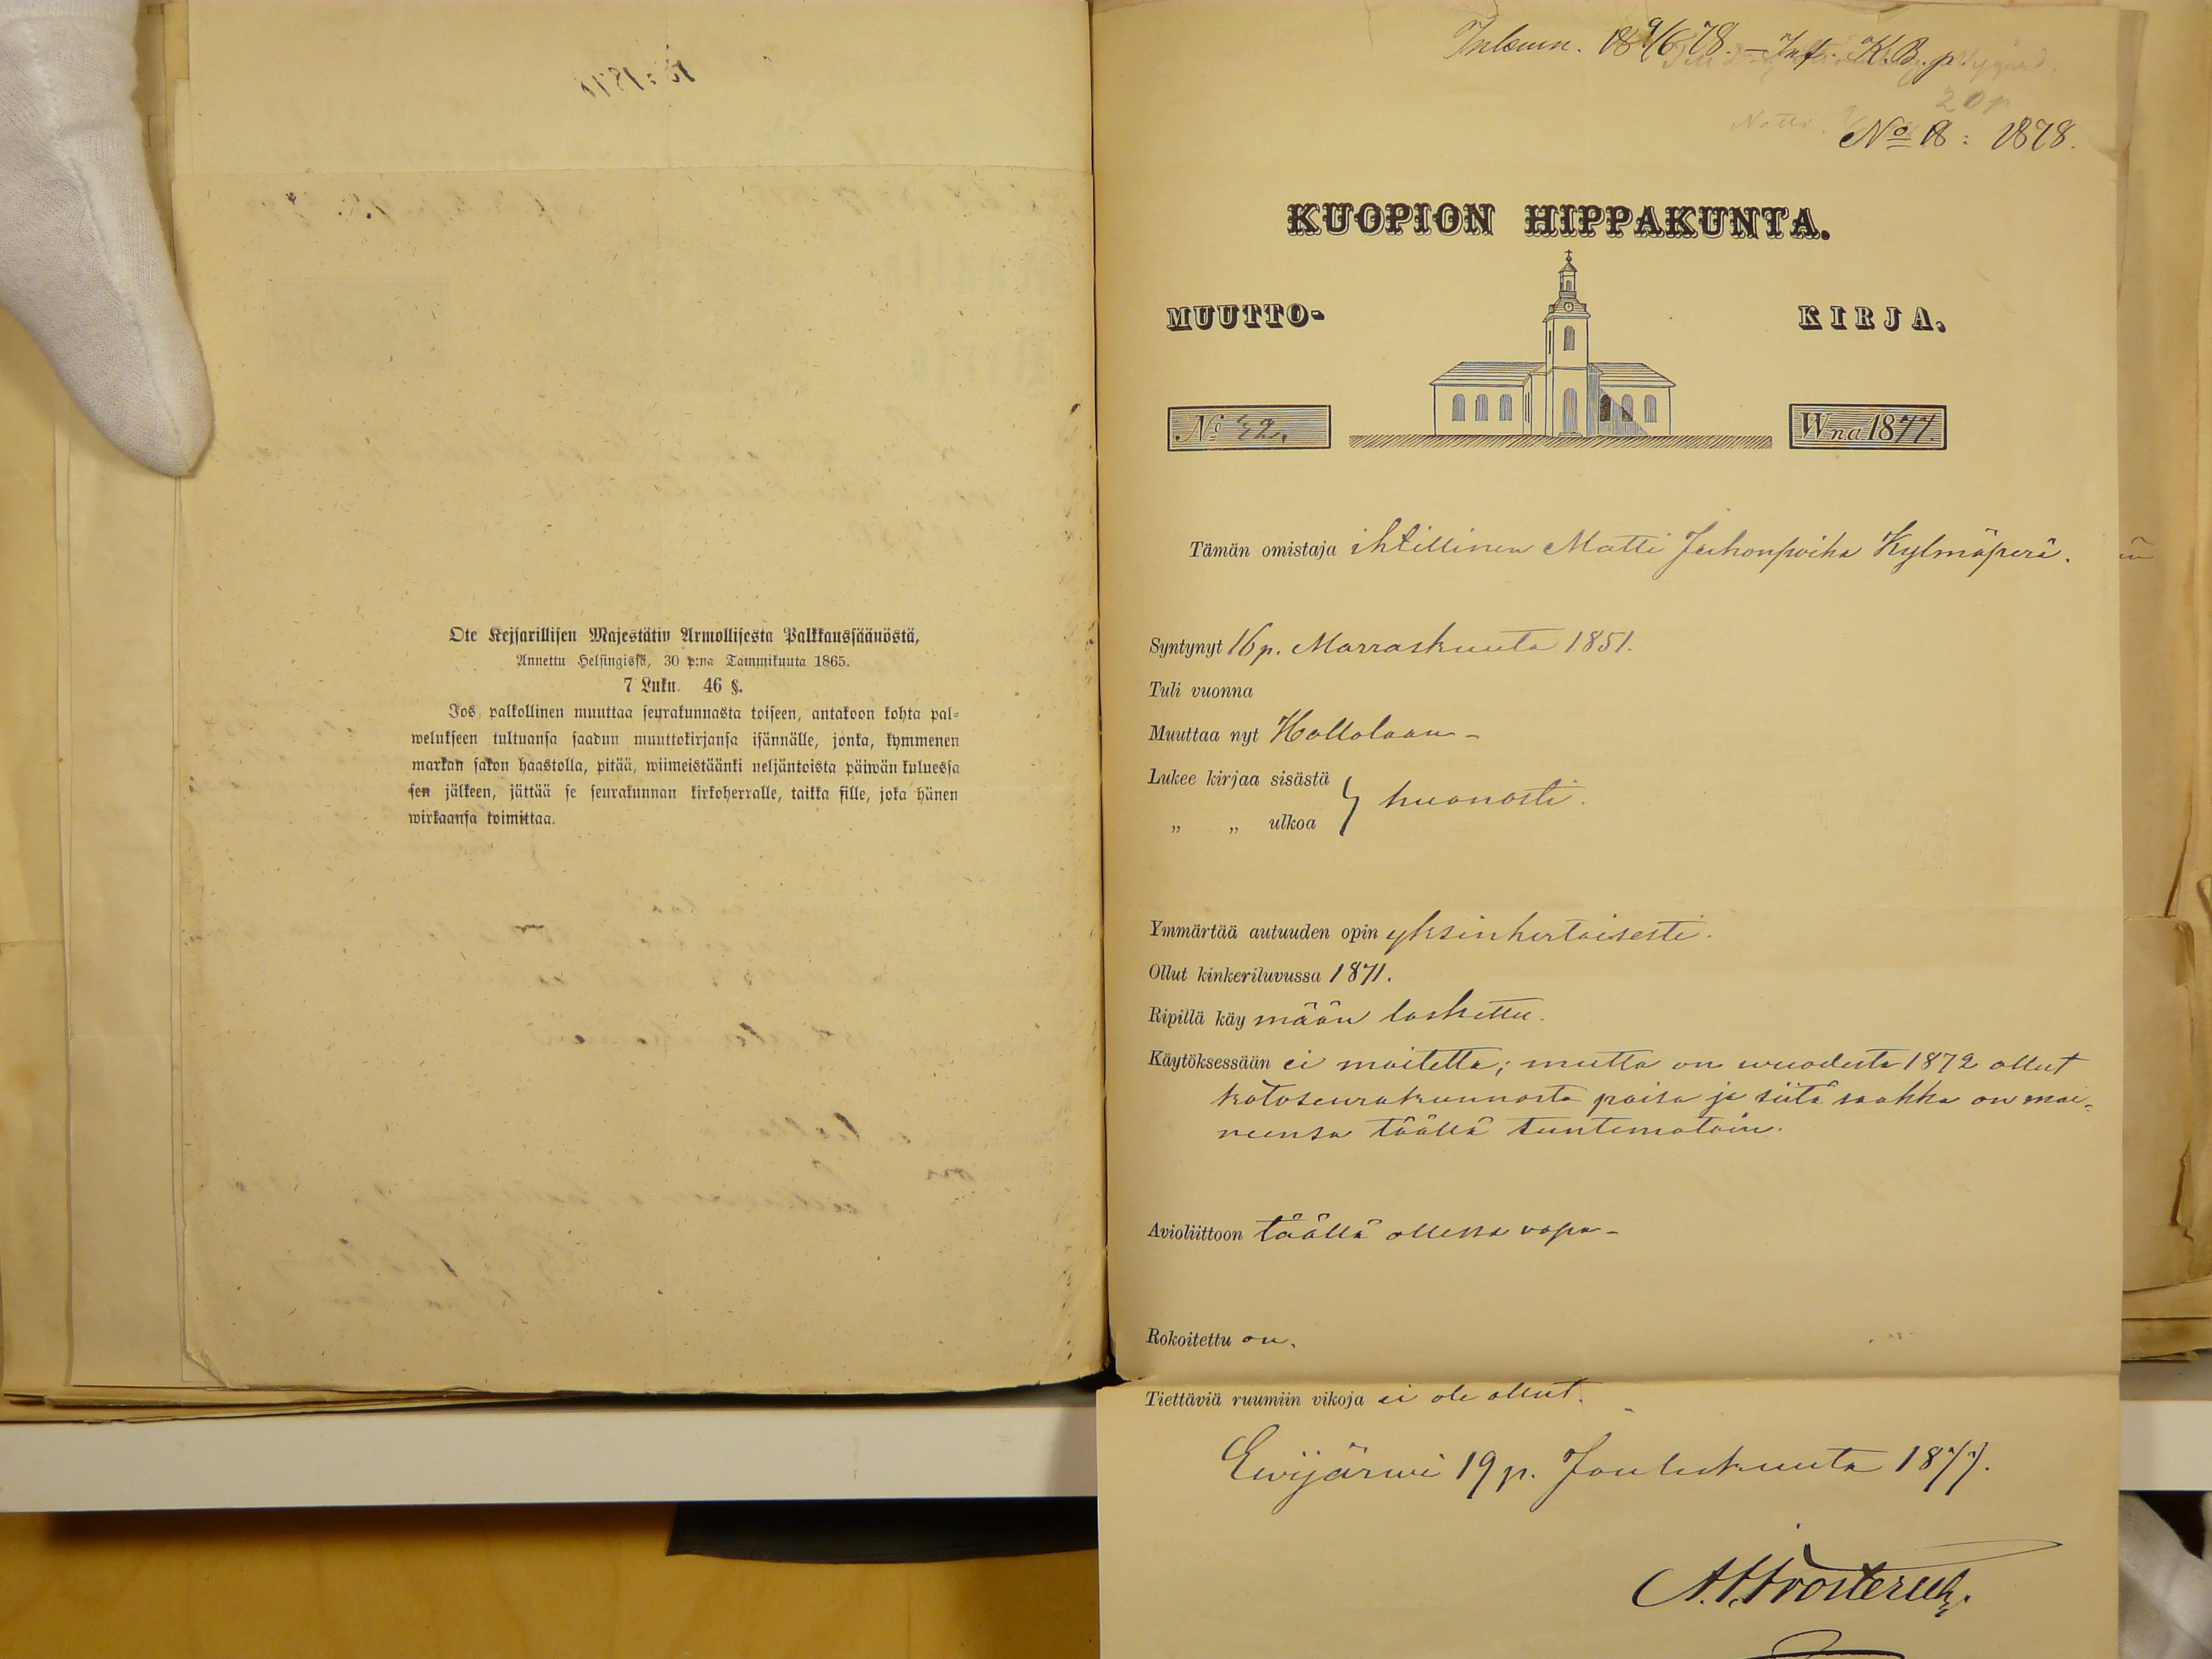 Ote Keisarillisen Majestätin Armollisesta Palkkaussäänöstä,
Annettu Helsingissä, 30 p:na Tammikuuta 1865.
7 Luku. 46 §.
Jos palkollinen muuttaa seurakunnasta toiseen, antakoon kohta pal=
welukseen tultuansa saadun muuttokirjansa isännälle, jonka, kymmenen
markan sakon haastolla, pitää, wiimeistäänki neljäntoista päiwän kuluessa
sen jälkeen, jättää se seurakunnan kirkoherralle, taikka sille, joka hänen
wirkaansa toimittaa.
Inlemn. 18 9/6 78. – Inf. K.B. p.
No 18: 1878.
KUOPION HIPPAKUNTA.
MUUTTO- KIRJA.
No 42. Wna 1877.
Tämän omistaja ihtillinen Matti Juhonpoika Kylmäperä.
Syntynyt 16 p. Marraskuuta 1851.
Tuli vuonna
Muuttaa nyt Hollolaan –
Lukee kirjaa sisästä
„ „ ulkoa } huonosti.
Ymmärtää autuuden opin yksinkertaisesti.
Ollut kinkeriluvussa 1871.
Ripillä käymään laskettu.
Käytöksessään ei moitetta; mutta on wuodesta 1872 ollut
kotoseurakunnasta poisa ja siitä saakka on mai=
neensa täällä tuntematoin.
Avioliittoon täällä ollessa vapa –
Rokoitettu on.
Tiettäviä ruumiin vikoja ei ole ollut.
Ewijärwi 19 p. Joulukuuta 1877.